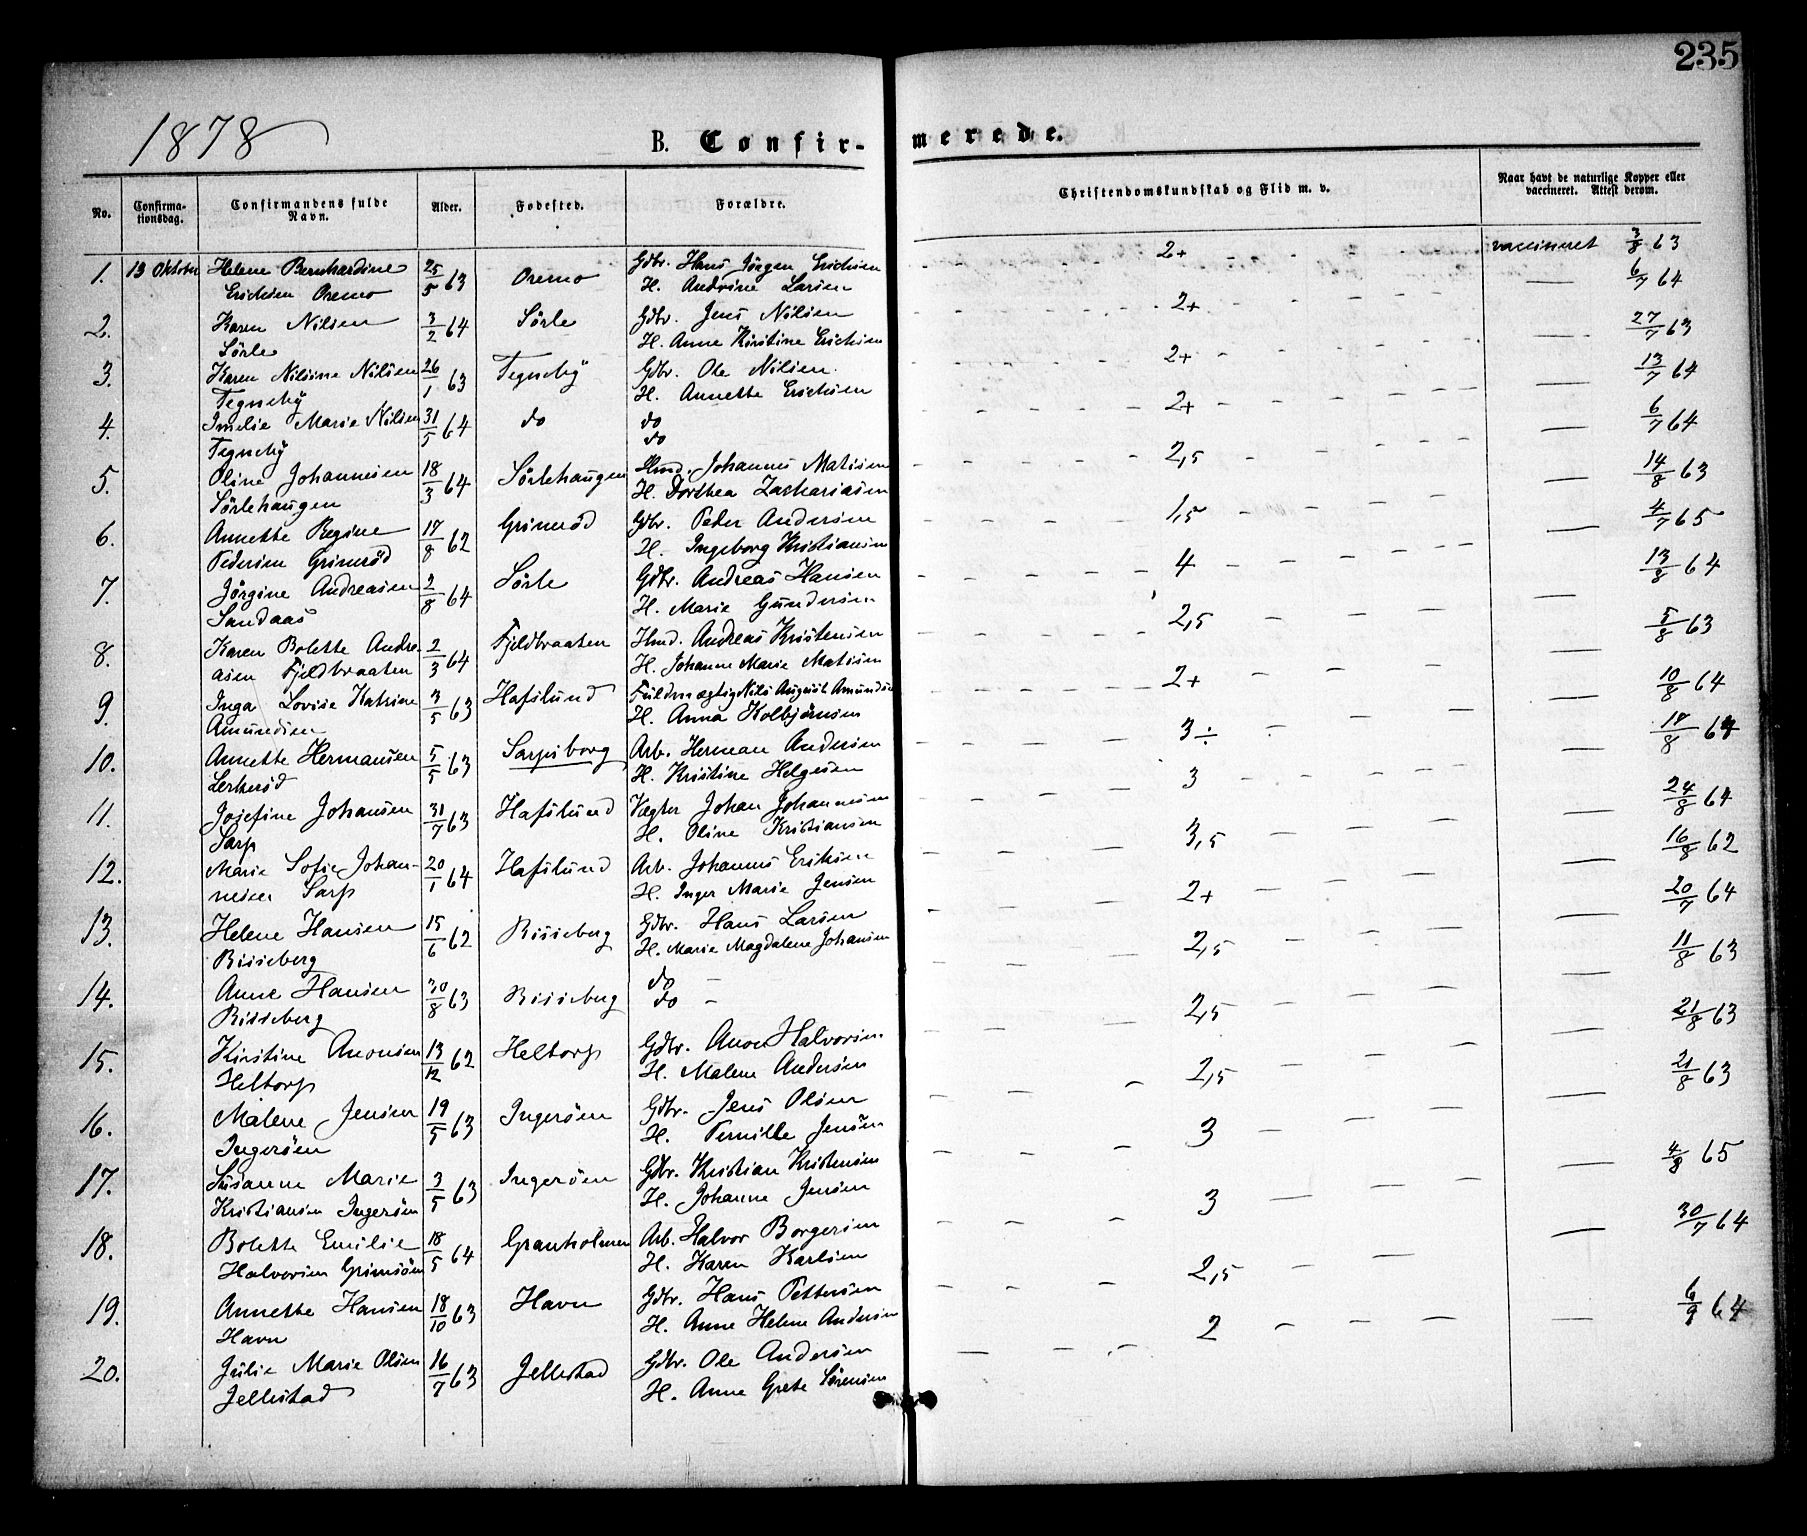 235
1878
B. Confir- merede.
No. Confirma-tionsdag. Confirmandens fulde Navn. Alder. Fødested. Forældre. Christendomskundskab og Flid m. v. Naar havt de naturlige Kopper eller vaccineret. Attest derom.
1. 13 Oktober Helene Bernhardine 25/5 63 Oremo Gdbr. Hans Jørgen Erichsen 2+ vaccineret 3/8 63
Erichsen Oremo H. Andrine Larsen
2. Karen Nilsen 3/2 64 Sörle Gdbr. Jens Nilsen 2+ — 6/7 64
Sörle H. Anne Kirstine Erichsen
3. Karen Nilsine Nilsen 26/1 63 Tegneby Gdbr. Ole Nilsen. 2+ — 27/7 63
Tegneby H. Annette Erichsen
4. Imelie Marie Nilsen 31/5 64 do do 2+ — 13/7 64
Tegneby do
5. Oline Johannesen 18/3 64 Sörlehaugen Hmd. Johannes Matisen 2,5 — 6/7 64
Sörlehaugen H. Dorthea Zachariasen
6. Annette Regine 17/8 62 Grimsöd Gdbr. Peder Andersen 1,5 — 14/8 63
Pedersen Grimsöd H. Ingeborg Kristiansen
7. Jörgine Andreasen 2/8 64 Sörle Gdbr. Andreas Hansen 4 — 4/7 65
Sandaas H. Marie Gundersen
8. Karen Bolette Andre- 2/3 64 Fjeldbraaten Hmd. Andreas Kristensen 2,5 — 13/8 64
asen Fjeldbraaten H. Johanne Marie Matisen
9. Inga Lovise Katrine 3/5 63 Hafslund Fuldmægtig Nils August Amundsen 2+ — 5/8 63
Amundsen H. Anna Kolbjørnsen
10. Annette Hermansen 5/5 63 Sarpsborg Arb. Herman Andersen 3÷ — 10/8 64
H. Kristine Helgesen
11. Josefine Johansen 31/7 63 Hafslund Vægter Johan Johannesen 3 — 17/8 64
Sarp H. Oline Kristiansen
12. Marie Sofie Johan- 20/1 64 Hafslund Arb. Johannes Eriksen 3,5 — 24/8 64
nesen Sarp H. Inger Marie Jensen
13. Helene Hansen 15/6 62 Bisseberg Gdbr. Hans Larsen 2+ — 16/8 62
Bisseberg H. Marie Magdalene Johansen
14. Anne Hansen 30/8 63 Bisseberg do – 2,5 — 20/7 64
Bisseberg do –
15. Kirstine Anonsen 13/12 62 Heltorp Gdbr. Anon Halvorsen 2,5 — 11/8 63
Heltorp H. Malene Andersen
16. Malene Jensen 19/5 63 Ingerøen Gdbr. Jens Olsen 2,5 — 21/8 63
Ingerøen H. Pernille Jensen
17. Susanne Marie 3/5 63 Ingerøen Gdbr. Kristian Kristensen 3 — 21/8 63
Kristiansen Ingerøen H. Johanne Jensen
18. Bolette Emilie 18/5 64 Granholmen Arb. Halvor Borgersen 3 — 4/8 65
Halvorsen Grimsöen H. Karen Karlsen
19. Annette Hansen 18/10 63 Havn Gdbr. Hans Pettersen 2,5 — 30/7 64
Havn H. Anne Helene Andersen
20. Julie Marie Olsen 16/7 63 Jellestad Gdbr. Ole Andersen 2 — 6/9 64
Jellestad H. Anne Grete Sørensen